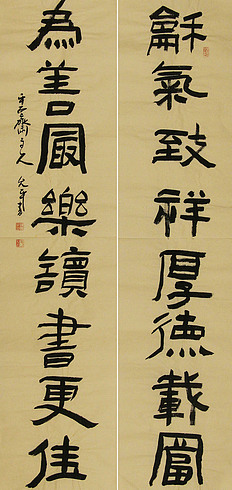 龢氣致祥厚德載冨
為善冣樂讀書更佳